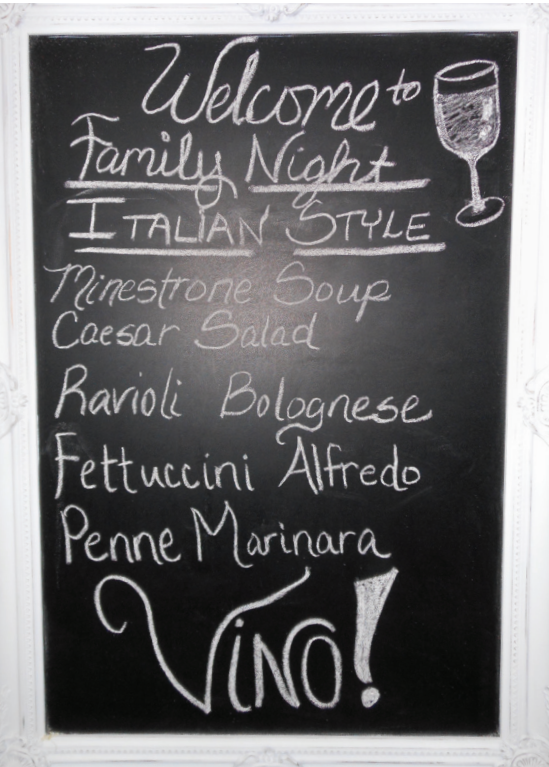 Welcome to
Family Night
ITALIAN STYLE
Minestrone Soup
Caesar Salad
Ravioli Bolognese
Fettuccini Alfredo
Penne Marinara
ViNO!